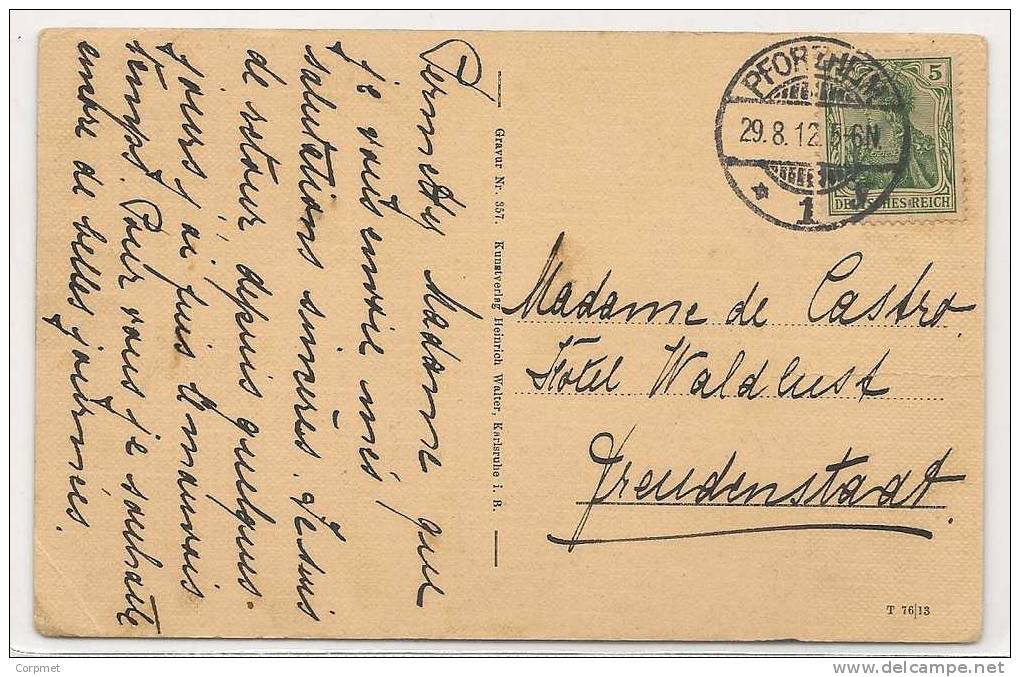 Permettez Madame que
je vous envoie mes
salutations sincères. Je suis
de retour, depuis quelques
jours j'ai fuis le mauvais
temps. Pour vous je souhaite
encore de belles journées.
Gravur Nr. 357. Kunstverlag Heinrich Walter, Karlsruhe i. B.
PFORZHEIM
29.8.12.5-6N.
* 1
5
DEUTSCHES REICH
Madame de Castro.
Hôtel Waldlust
Freudenstadt.
T 76|13
Corpmet
www.delcampe.net